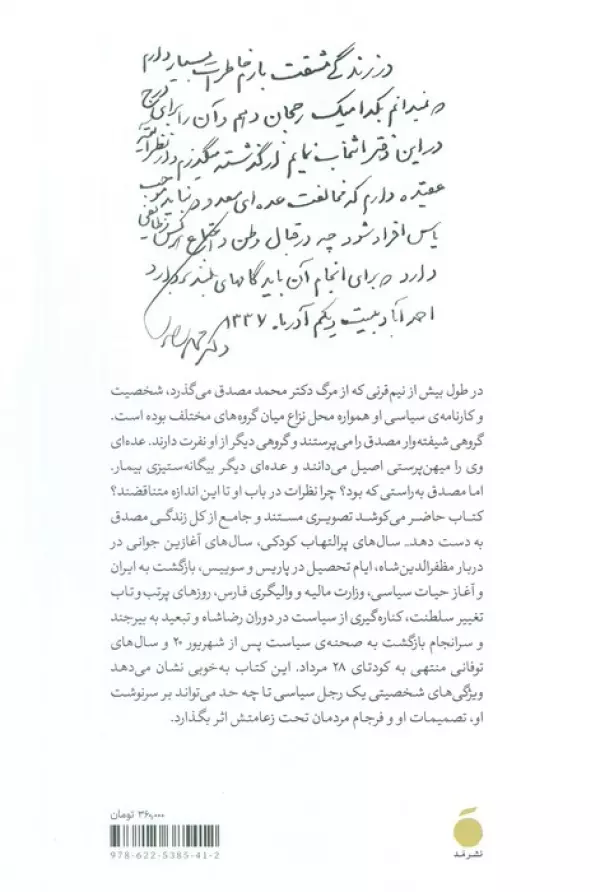 در زندگی مشقت بارم خاطرات بسیار دارم
نمیدانم بکدامیک رجحان دهم و آن را برای درج
در این دفتر انتخاب نمایم از گذشته میگذرم و از نظر آتیه
عقیده دارم که مخالفت عده‌ای معدود نباید موجب
یأس افراد شود چه در قبال وطن و اجتماع هر کس وظایفی
دارد که برای انجام آن باید گامهای بلند بردارد
احمدآباد بیست و یکم آذرماه ۱۳۳۷
دکتر محمد مصدق
در طول بیش از نیم‌قرنی که از مرگ دکتر محمد مصدق می‌گذرد، شخصیت
و کارنامه‌ی سیاسی او همواره محل نزاع میان گروه‌های مختلف بوده است.
گروهی شیفته‌وار مصدق را می‌پرستند و گروهی دیگر از او نفرت دارند. عده‌ای
وی را میهن‌پرستی اصیل می‌دانند و عده‌ای دیگر بیگانه‌ستیزی بیمار.
اما مصدق به‌راستی که بود؟ چرا نظرات در باب او تا این اندازه متناقضند؟
کتاب حاضر می‌کوشد تصویری مستند و جامع از کل زندگی مصدق
به دست دهد_ سال‌های پرالتهاب کودکی، سال‌های آغازین جوانی در
دربار مظفرالدین‌شاه، ایام تحصیل در پاریس و سوییس، بازگشت به ایران
و آغاز حیات سیاسی، وزارت مالیه و والیگری فارس، روزهای پرتب‌وتاب
تغییر سلطنت، کناره‌گیری از سیاست در دوران رضاشاه و تبعید به بیرجند
و سرانجام بازگشت به صحنه‌ی سیاست پس از شهریور ۲۰ و سال‌های
توفانی منتهی به کودتای ۲۸ مرداد. این کتاب به‌خوبی نشان می‌دهد
ویژگی‌های شخصیتی یک رجل سیاسی تا چه حد می‌تواند بر سرنوشت
او، تصمیمات او و فرجام مردمان تحت زعامتش اثر بگذارد.
۳۶۰,۰۰۰ تومان
978-622-5385-41-2
نشر مد